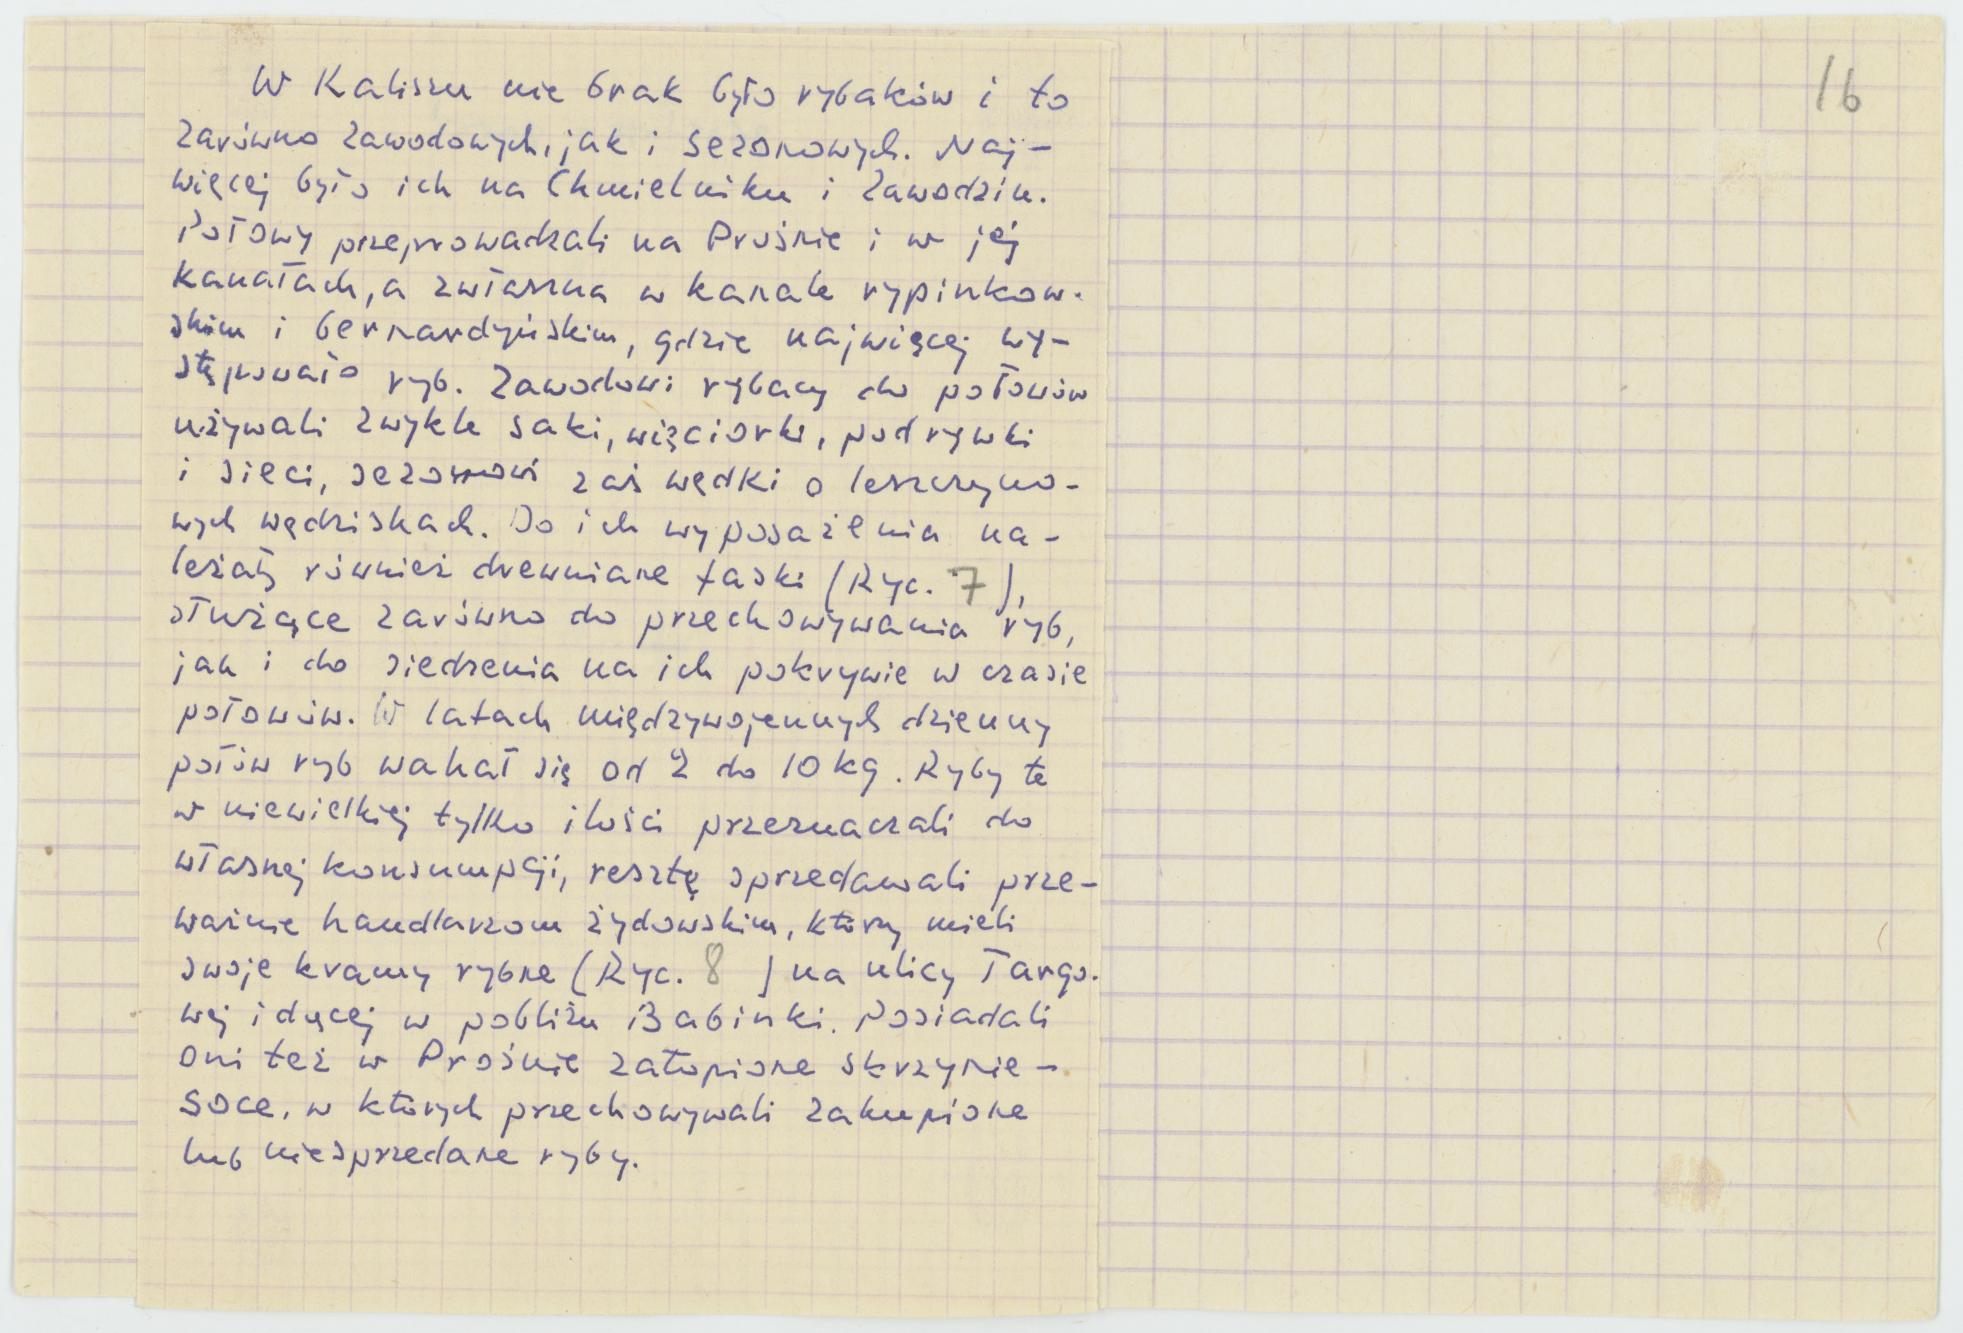 16
W Kaliszu nie brak było rybaków i to
zarówno zawodowych, jak i sezonowych. Naj-
więcej było ich na Chmielniku i Zawodziu.
Połowy przeprowadzali na Prośnie i w jej
kanałach, a zwłaszcza w kanale rypinkow-
skim i bernardyńskim, gdzie najwięcej wy-
stępowało ryb. Zawodowi rybacy do połowów
używali zwykle saki, więciorki, podrywki
i sieci, sezonowi zaś wędki o leszczyno-
wych wędziskach. Do ich wyposażenia na-
leżały również drewniane faski (Ryc. 7),
służące zarówno do przechowywania ryb,
jak i do siedzenia na ich pokrywie w czasie
połowów. W latach międzywojennych dzienny
połów ryb wahał się od 2 do 10 kg. Ryby te
w niewielkiej tylko ilości przeznaczali do
własnej konsumpcji, resztę sprzedawali prze-
ważnie handlarzom żydowskim, którzy mieli
swoje kramy rybne (Ryc. 8 ) na ulicy Targo-
wej idącej w pobliżu Babinki. Posiadali
oni też w Prośnie zatopione skrzynie-
soce, w których przechowywali zakupione
lub niesprzedane ryby.